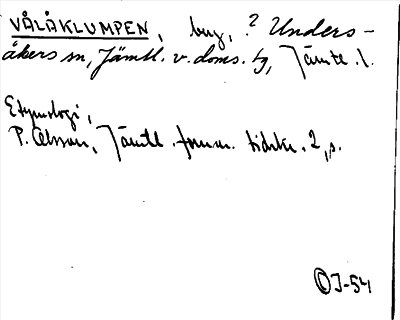 VÅLÅKLUMPEN, berg, ? Unders-
åkers sn, Jämtl. v. doms. tg, Jämtl. l.
Etymologi,
P. Olsson, Jämtl. fornm. tidskr. 2, s.
OJ-54